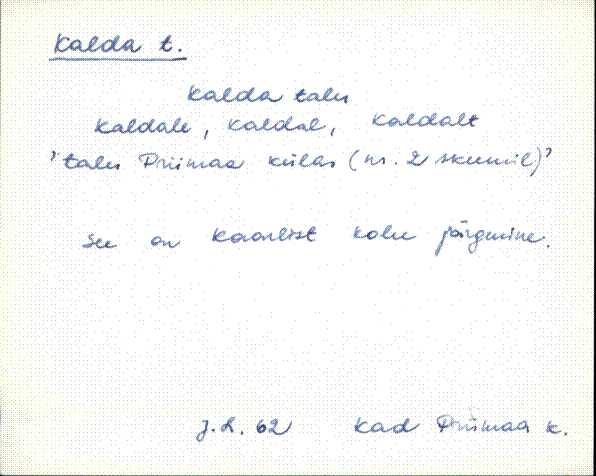 Kalda t.
Kalda talu
Kaldale, Kaldal, Kaldalt
'talu Priimaa külas (nr. 2 skeemil)'
See on Kaarlist kohe järgmine.
J.L. 62 Kad Priimaa k.